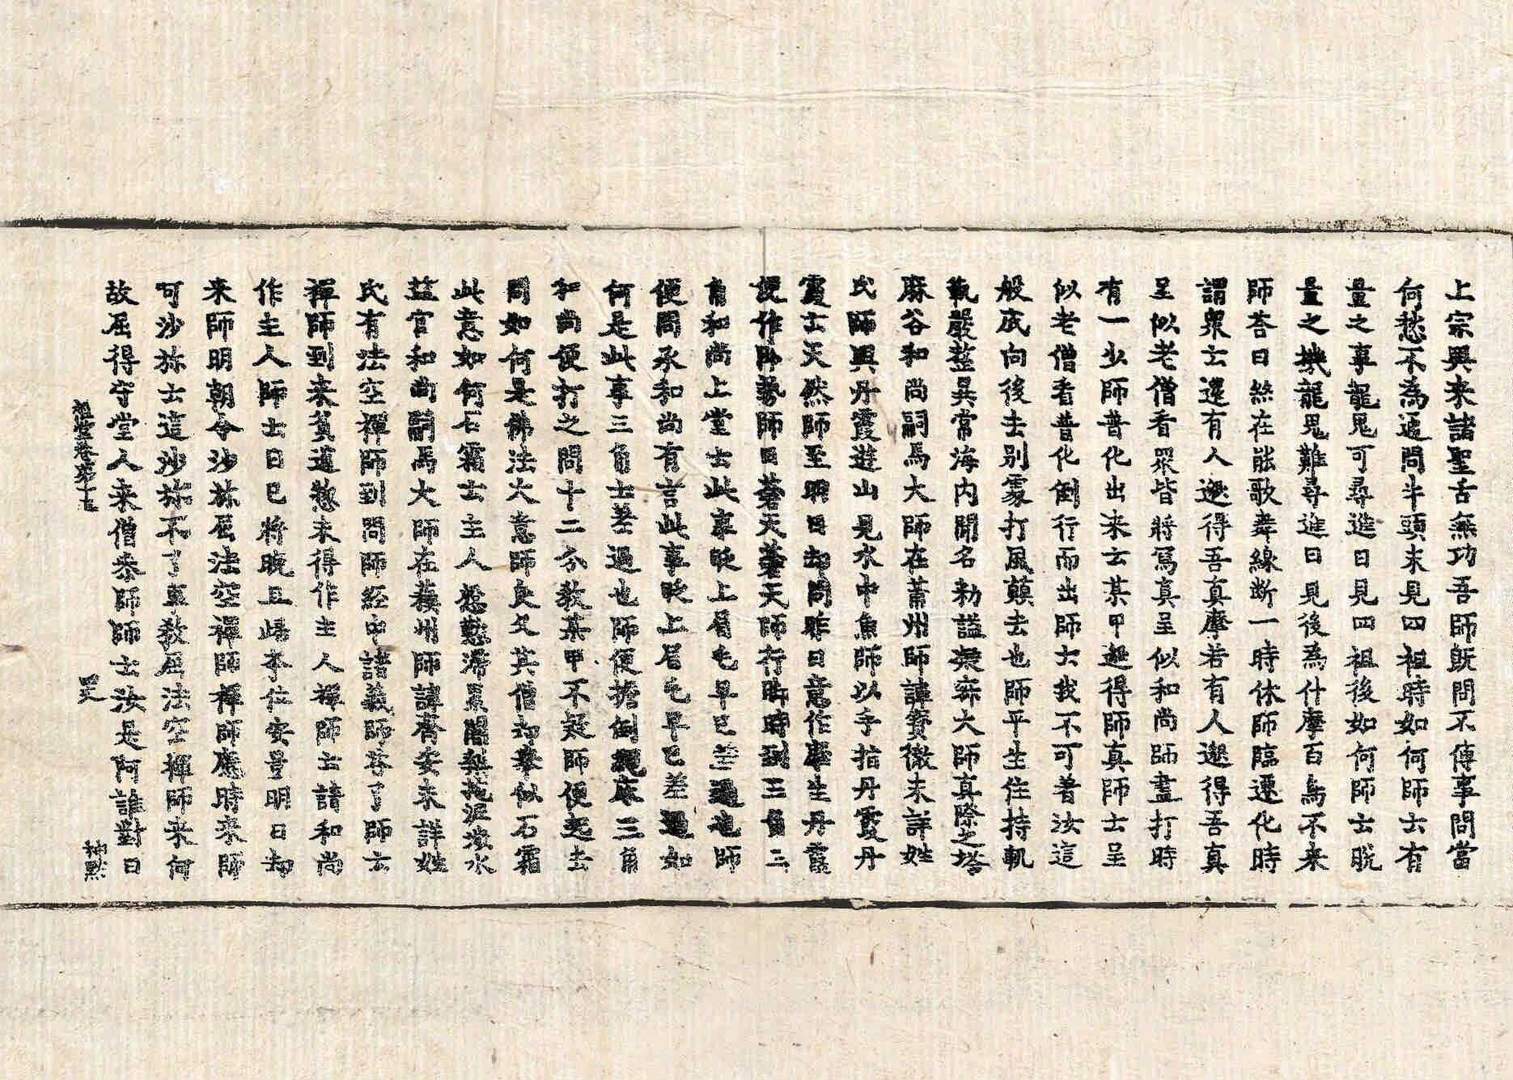 上宗興来諸聖舌無功吾師既問不傳事問當
何愁不為通問牛頭未見四祖時如何師云有
量之事龍鬼可尋進曰見四祖後如何師云脫
量之機龍鬼難尋進曰見後為什摩百鳥不来
師荅曰絲在能歌舞線断一時休師臨遷化時
謂衆士還有人邈得吾真摩若有人邈得吾真
呈似老僧看衆皆將寫真呈似和尚師盡打時
有一少師普化出来云某甲邈得師真師云呈
似老僧看普化倒行而出師云我不可著汝這
般底向後去別處打風顛去也師平生住持軌
範嚴整異常海内聞名勑謚凝寂大師真際之塔
麻谷和尚嗣馬大師在蒲州師諱寶徹未詳姓
氏師與丹霞遊山見水中魚師以手指丹霞丹
霞云天然師至明日却問昨日意作摩生丹霞
便作卧勢師曰蒼天蒼天師行脚時到三角三
角和尚上堂云此事眨上眉毛早已差過也師
便問承和尚有言此事眨上眉毛早已差過如
何是此事三角云差過也師便擔倒繩床三角
和尚便打之問十二分教某甲不疑師便起去
問如何是佛法大意師良久其僧却舉似石霜
此意如何石霜云主人慇懃滯累闍梨拖泥渧水
塩官和尚嗣馬大師在蘓州師諱齊安未詳姓
氏有法空禪師到問師經中諸義師荅了師云
禪師到来貧道惣未得作主人禪師云請和尚
作主人師云日已將晚且歸本位安置明日却
来師明朝令沙弥屈法空禪師禪師應時来師
呵沙弥云這沙弥不了事教屈法空禪師来何
故屈得守堂人来僧叅師師云汝是阿誰對曰
祖堂卷第十五
四丈